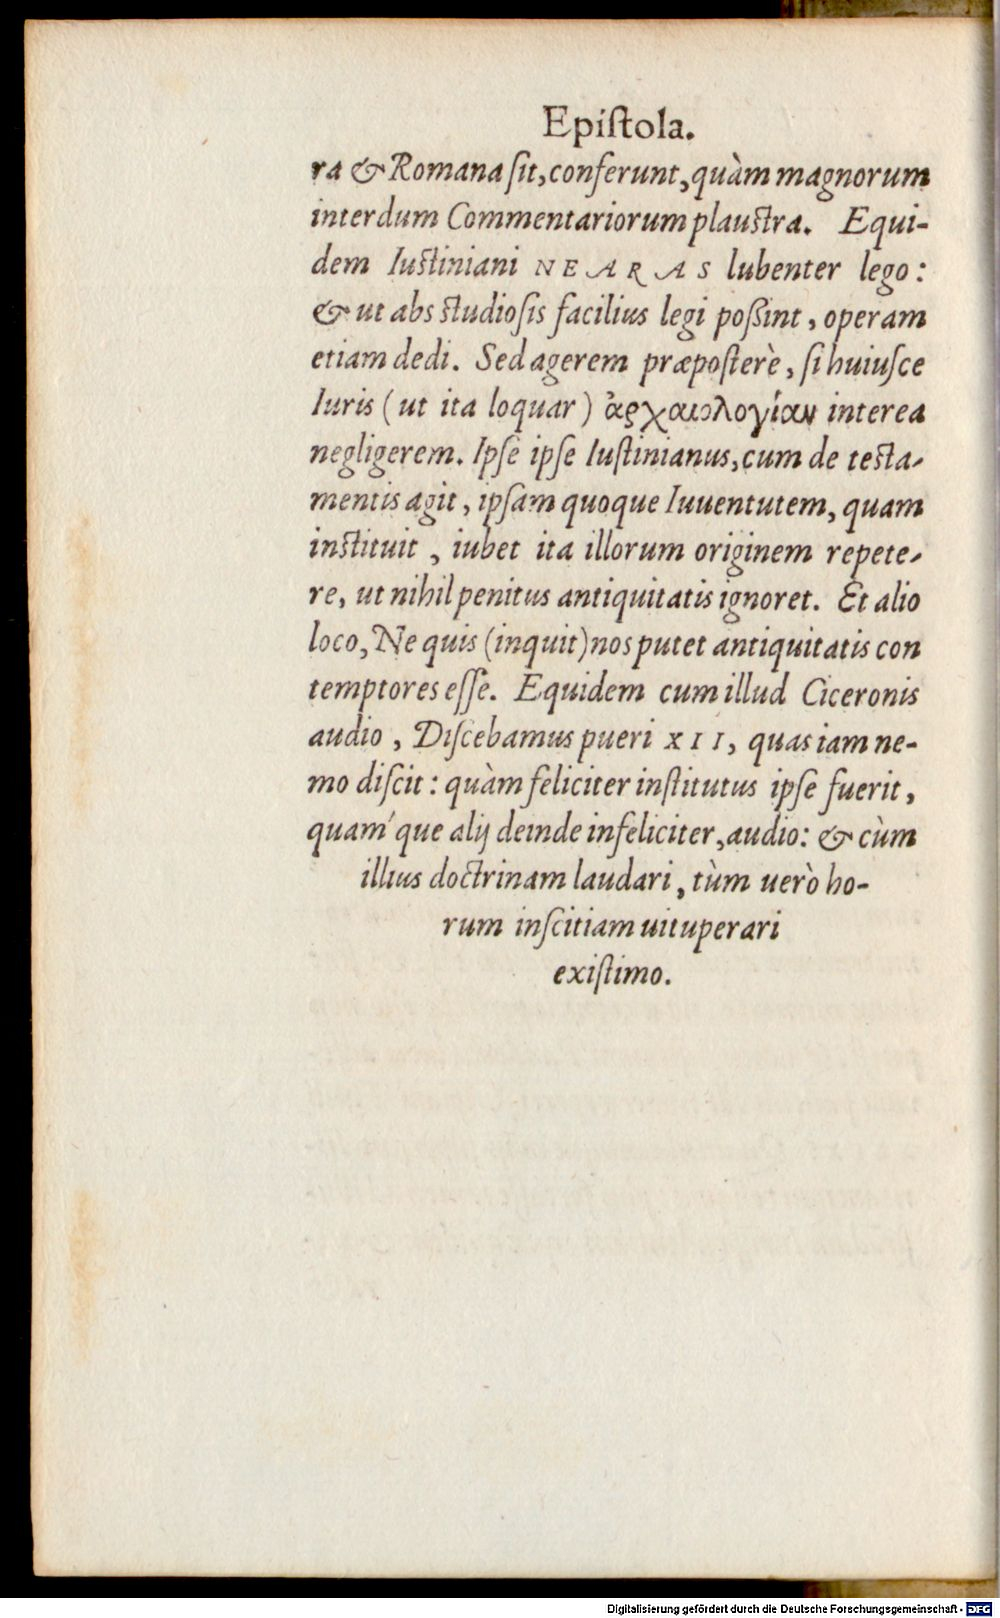 Epiſtola.
ra & Romana ſit, conferunt, quàm magnorum
interdum Commentariorum plauſtra. Equi-
dem Iuſtiniani NEARAS lubenter lego:
& ut abs ſtudioſis facilius legi poßint, operam
etiam dedi. Sed agerem præpoſterè, ſi huiuſce
Iuris (ut ita loquar) ἀρχαιολογίαν interea
negligerem. Ipſe ipſe Iuſtinianus, cum de teſta-
mentis agit, ipſam quoque Iuuentutem, quam
inſtituit, iubet ita illorum originem repete-
re, ut nihil penitus antiquitatis ignoret. Et alio
loco, Ne quis (inquit) nos putet antiquitatis con
temptores eſſe. Equidem cum illud Ciceronis
audio, Diſcebamus pueri XII, quas iam ne-
mo diſcit: quàm feliciter inſtitutus ipſe fuerit,
quam´que alij deinde infeliciter, audio: & cùm
illius doctrinam laudari, tùm uerò ho-
rum inſcitiam uituperari
exiſtimo.
Digitalisierung gefördert durch die Deutsche Forschungsgemeinschaft - DFG